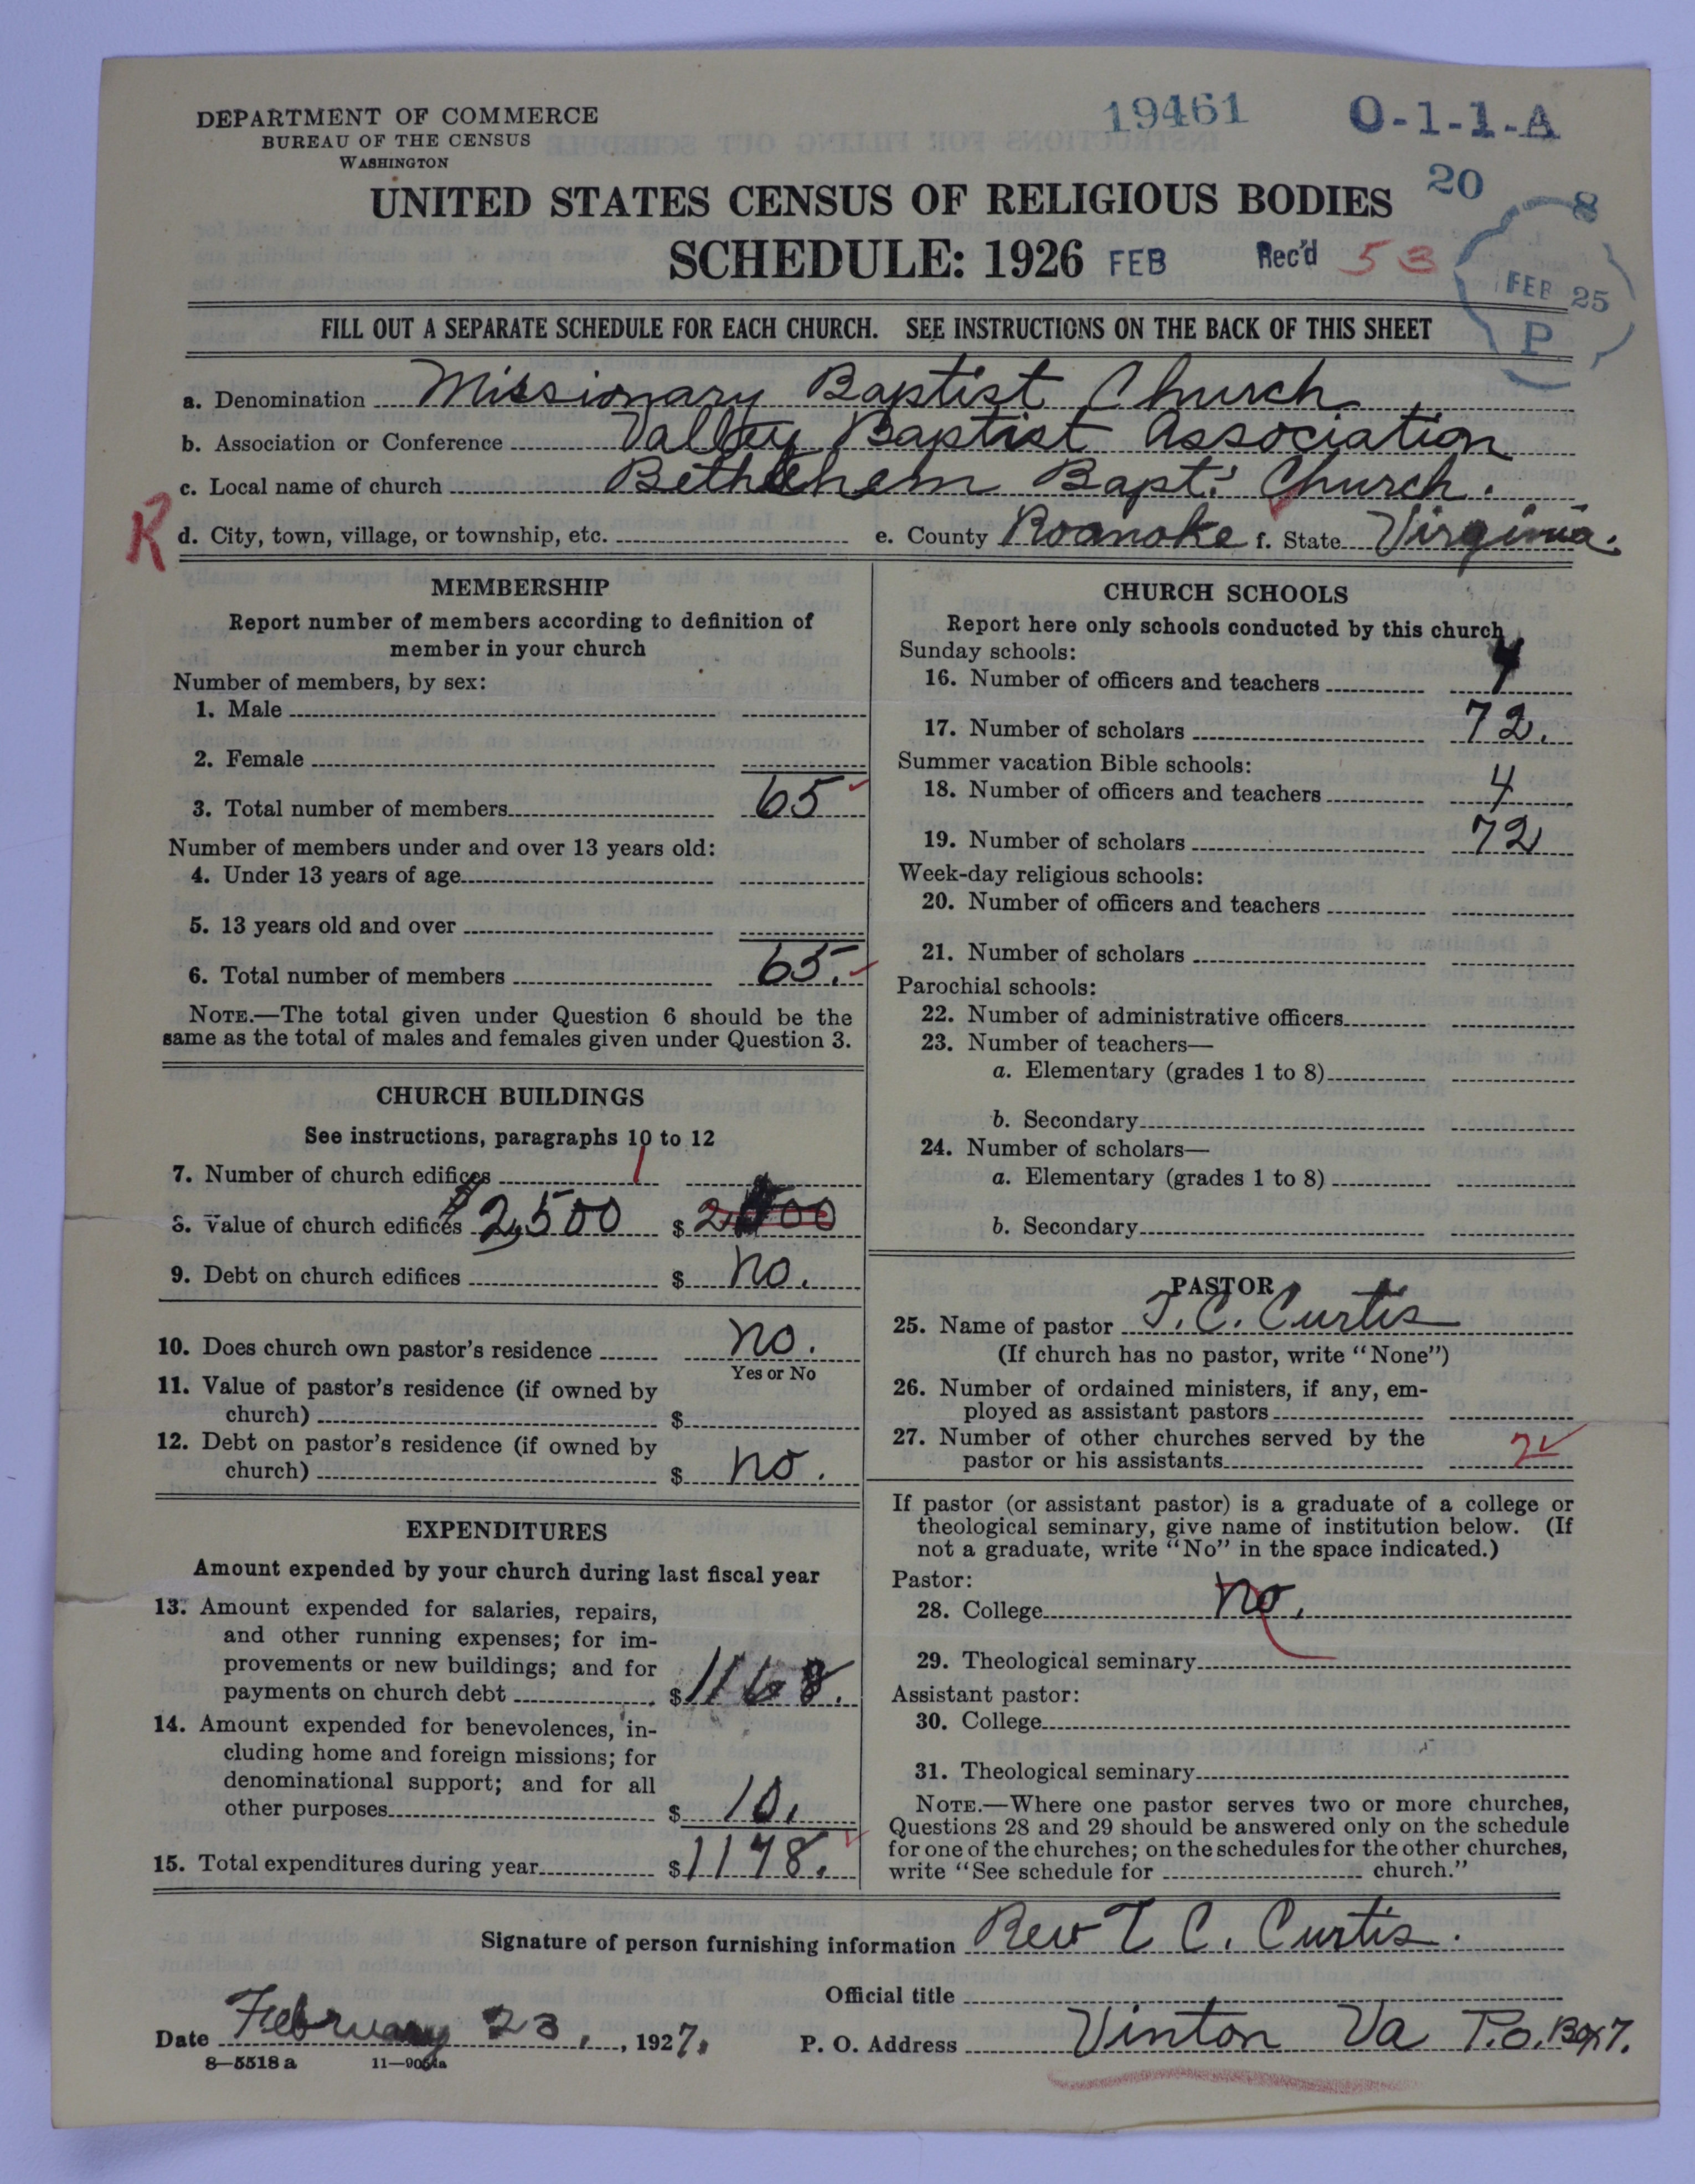 DEPARTMENT OF COMMERCE
BUREAU OF THE CENSUS
WASHINGTON
19461
O-1-1-A
20
8
UNITED STATES CENSUS OF RELIGIOUS BODIES
SCHEDULE: 1926 FEB Rec'd 53
FEB 25
P
FILL OUT A SEPARATE SCHEDULE FOR EACH CHURCH. SEE INSTRUCTIONS ON THE BACK OF THIS SHEET
a. Denomination Missionary Baptist Church
b. Association or Conference Valley Baptist Association
c. Local name of church Bethlehem Bapt. Church.
R
d. City, town, village, or township, etc. e. County Roanoke f. State Virginia.
MEMBERSHIP
Report number of members according to definition of
member in your church
Number of members, by sex:
1. Male
2. Female
3. Total number of members 65
Number of members under and over 13 years old:
4. Under 13 years of age
5. 13 years old and over
6. Total number of members 65.
NOTE.—The total given under Question 6 should be the
same as the total of males and females given under Question 3.
CHURCH BUILDINGS
See instructions, paragraphs 10 to 12
7. Number of church edifices 1
8. Value of church edifices $2,500 $
9. Debt on church edifices $ no.
10. Does church own pastor's residence no.
Yes or No
11. Value of pastor's residence (if owned by
church) $
12. Debt on pastor's residence (if owned by
church) $ no.
EXPENDITURES
Amount expended by your church during last fiscal year
13. Amount expended for salaries, repairs,
and other running expenses; for im-
provements or new buildings; and for
payments on church debt $ 1168.
14. Amount expended for benevolences, in-
cluding home and foreign missions; for
denominational support; and for all
other purposes $ 10.
15. Total expenditures during year $ 1178.
CHURCH SCHOOLS
Report here only schools conducted by this church
Sunday schools:
16. Number of officers and teachers 4
17. Number of scholars 72.
Summer vacation Bible schools:
18. Number of officers and teachers 4
19. Number of scholars 72
Week-day religious schools:
20. Number of officers and teachers
21. Number of scholars
Parochial schools:
22. Number of administrative officers
23. Number of teachers—
a. Elementary (grades 1 to 8)
b. Secondary
24. Number of scholars—
a. Elementary (grades 1 to 8)
b. Secondary
PASTOR
25. Name of pastor T. C. Curtis
(If church has no pastor, write "None")
26. Number of ordained ministers, if any, em-
ployed as assistant pastors
27. Number of other churches served by the
pastor or his assistants 2
If pastor (or assistant pastor) is a graduate of a college or
theological seminary, give name of institution below. (If
not a graduate, write "No" in the space indicated.)
Pastor:
28. College no.
29. Theological seminary
Assistant pastor:
30. College
31. Theological seminary
NOTE.—Where one pastor serves two or more churches,
Questions 28 and 29 should be answered only on the schedule
for one of the churches; on the schedules for the other churches,
write "See schedule for church."
Signature of person furnishing information Rev T C. Curtis.
Official title
Date February 23, , 1927. P. O. Address Vinton Va P.O. Box 7.
8—5518 a 11—9054a